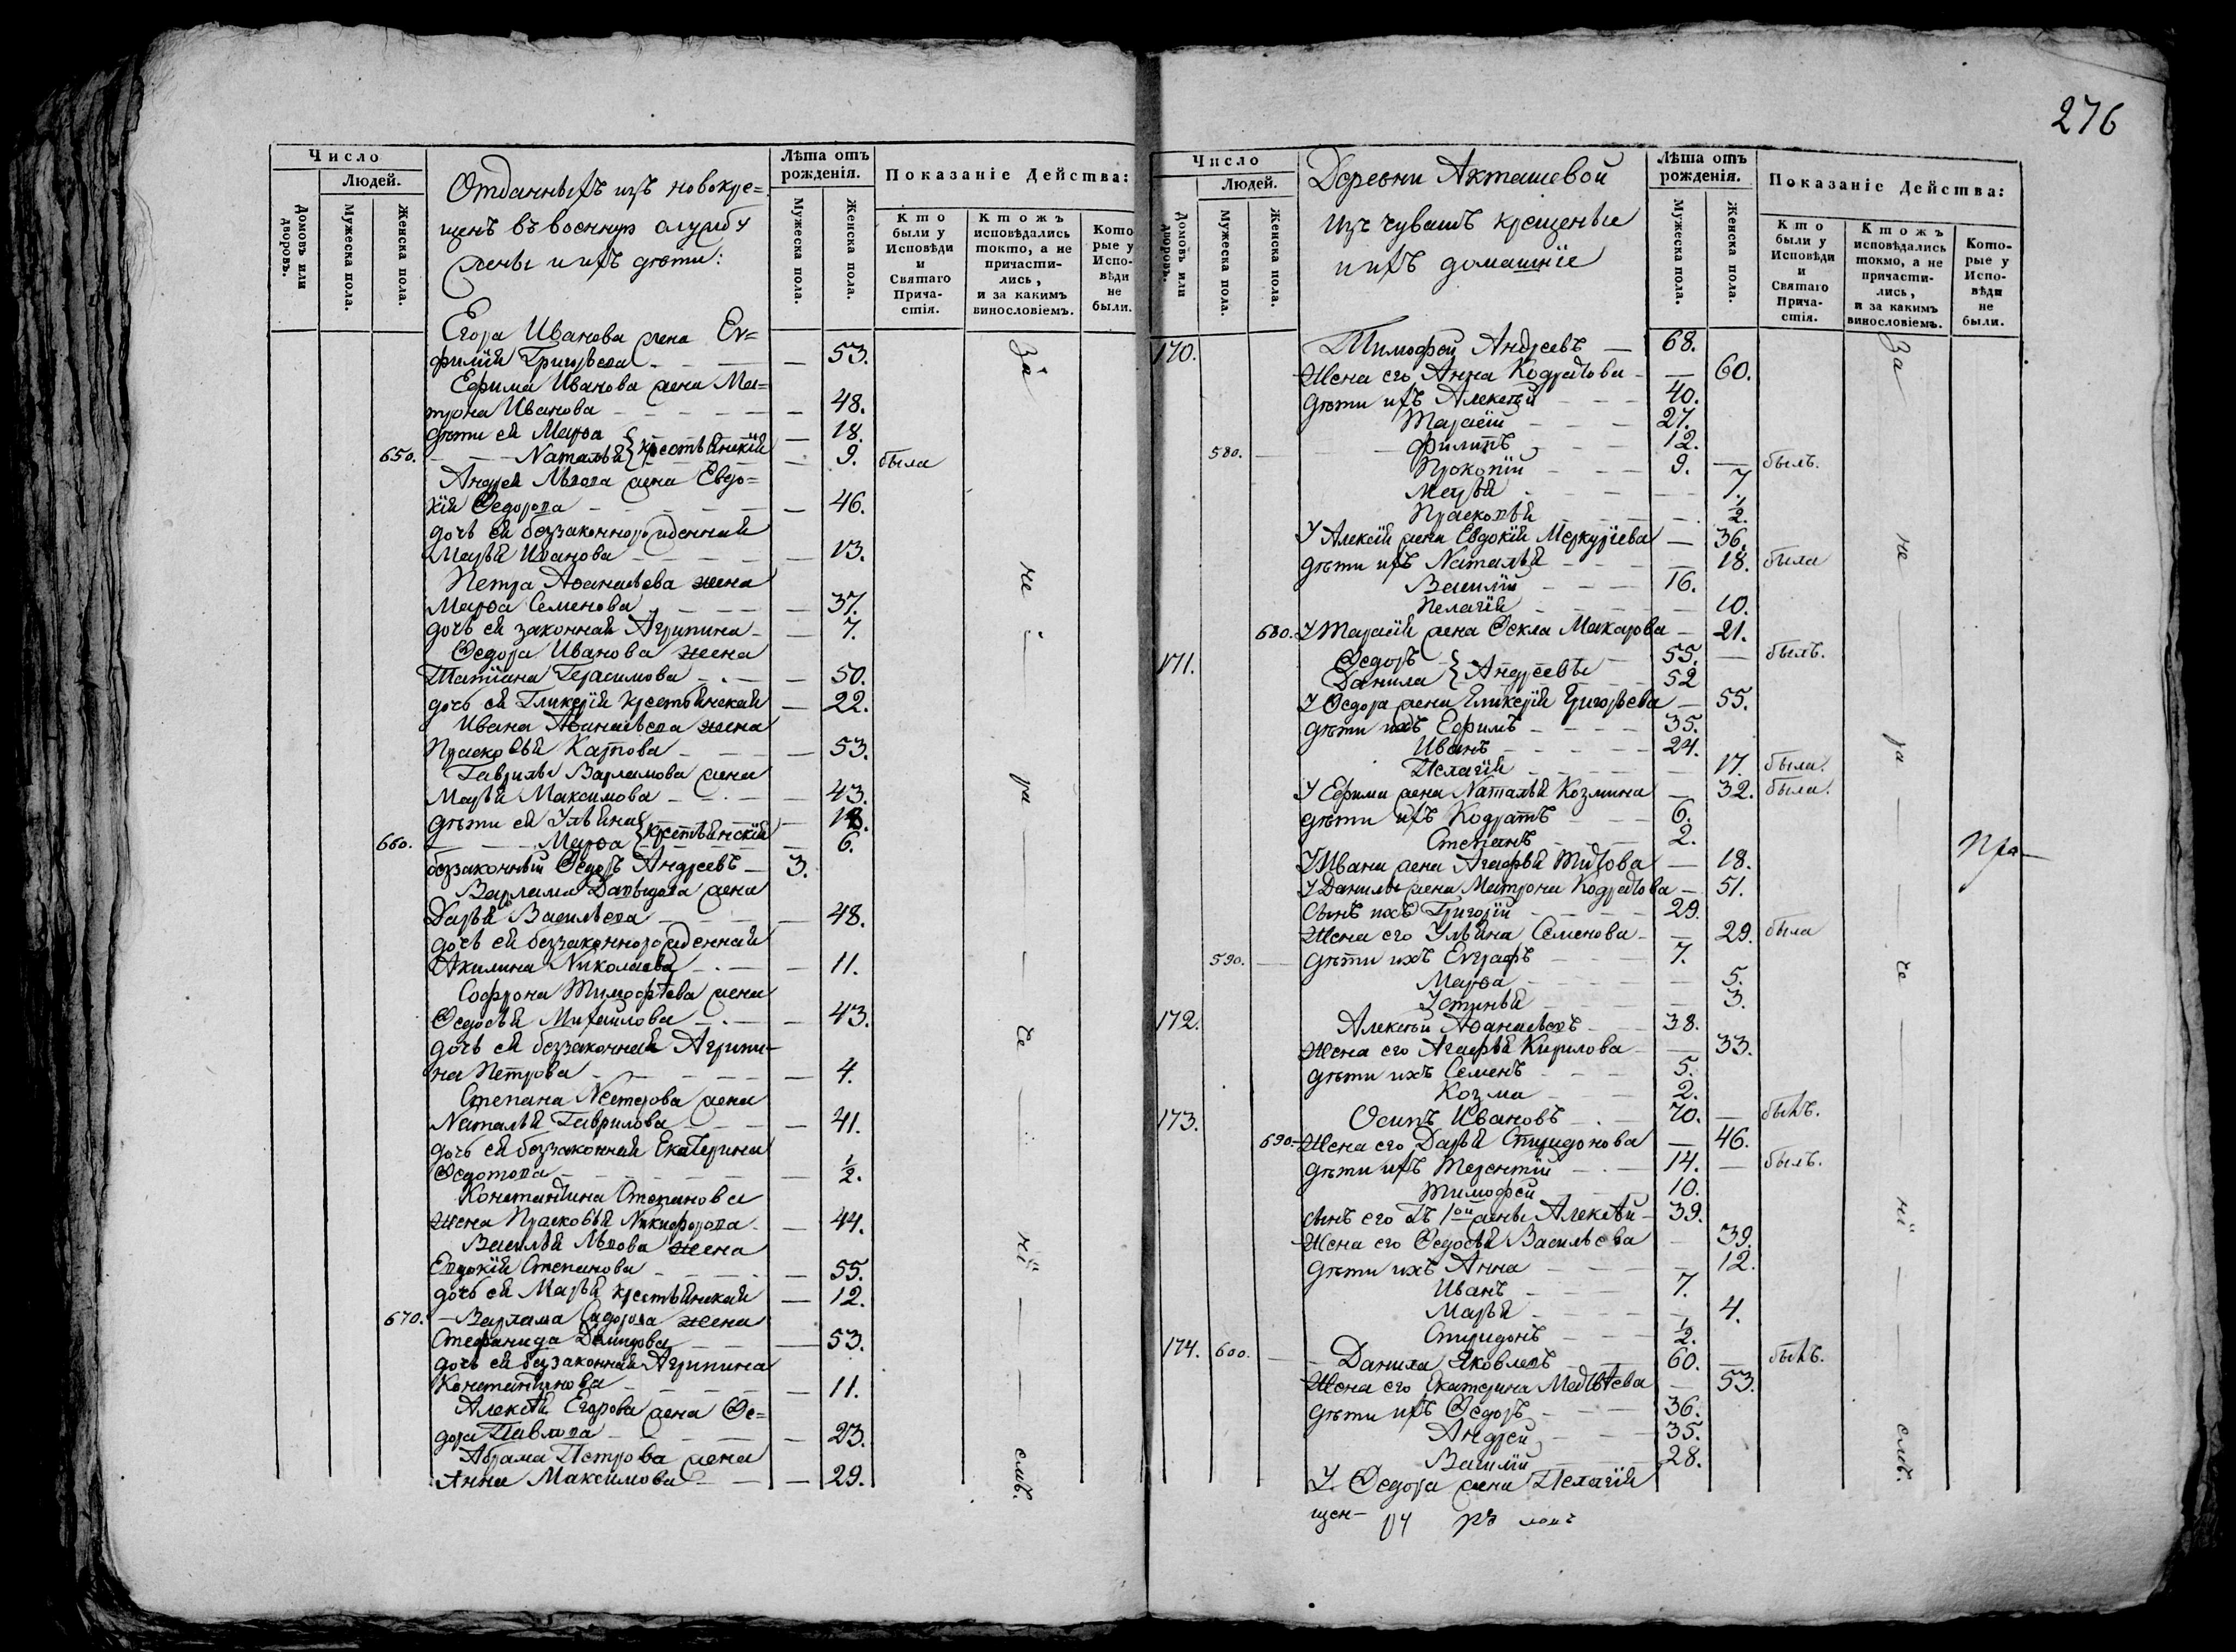 276
Число
Людей.
Домовъ или дворовъ.
Мужеска пола.
Женска пола.
Отданныхъ изъ новокре=
щенъ въ военную службу
жены и ихъ дѣти:
Лѣта отъ
рожденія.
Мужеска пола.
Женска пола.
Показаніе Действа:
Кто
были у
Исповѣди
и
Святаго
Прича-
стія.
Ктожъ
исповѣдались
токмо, а не
причасти-
лись,
и за какимъ
винословіемъ.
Кото
рые у
Испо-
вѣди
не
были.
Егора Иванова жена Ев=
филія Григорьева — 53.
Ефима Иванова жена Ма=
трона Иванова — 48.
дѣти ея Марѳа — 18.
650. Наталья } крестьянскія — 9. была
Андрея Львова жена Евдо=
кія Ѳедорова — 46.
дочь ея беззаконнорожденная
Марья Иванова — 13.
Петра Аѳанасьева жена
Марѳа Семенова — 37.
дочь ея законная Агрипина — 7.
Ѳедора Иванова жена
Татіана Герасимова — 50.
дочь ея Гликерія крестьянская — 22.
Ивана Аѳанасьева жена
Прасковья Карпова — 53.
Гаврилы Варламова жена
Марья Максимова — 43.
дѣти ея Ульяна — 18.
660. Марѳа } крестьянскія — 6.
беззаконный Ѳедоръ Андреевъ — 3.
Варлама Давыдова жена
Дарья Васильева — 48.
дочь ея беззаконнорожденная
Акилина Николаева — 11.
Софрона Тимофѣева жена
Ѳедосья Михайлова — 43.
дочь ея беззаконная Агрипи-
на Петрова — 4.
Степана Нестерова жена
Наталья Гаврилова — 41.
дочь ея беззаконная Екатерина
Ѳедотова — 1/2.
Константина Степанова
жена Прасковья Никифорова — 44.
Василья Львова жена
Евдокія Степанова — 55.
дочь ея Марья крестьянская — 12.
670. Варлама Сидорова жена
Стефанида Демидова — 53.
дочь ея беззаконная Агрипина
Константинова — 11.
Алексѣя Егорова жена Ѳе=
дора Павлова — 23.
Абрама Петрова жена
Анна Максимова — 29.
За не ра че ні емъ.
Число
Людей.
Домовъ или дворовъ.
Мужеска пола.
Женска пола.
Деревни Акташевой
изъ чувашъ крещеные
и ихъ домашніе
Лѣта отъ
рожденія.
Мужеска пола.
Женска пола.
Показаніе Действа:
Кто
были у
Исповѣди
и
Святаго
Прича-
стія.
Ктожъ
исповѣдались
токмо, а не
причасти-
лись,
и за какимъ
винословіемъ.
Кото-
рые у
Испо-
вѣди
не
были.
170. Тимофей Андреевъ — 68.
Жена его Анна Кодратова — 60.
дѣти ихъ Алексѣй — 40.
Тарасій — 27.
580. Филипъ — 12.
Прокопій — 9. — былъ.
Марья — 7.
Прасковья — 1/2.
У Алексія жена Евдокія Меркуріева — 36.
дѣти ихъ Наталья — 18. была
Василій — 16.
Пелагія — 10.
680. У Тарасія жена Ѳекла Макарова — 21.
171. Ѳедоръ — 55. — былъ.
Данила } Андреевы — 52
У Ѳедора жена Гликерія Григорьева — 55.
дѣти ихъ Ефимъ — 35.
Иванъ — 24.
Пелагія — 17. была.
У Ефима жена Наталья Козмина — 32. была.
дѣти ихъ Кодратъ — 6.
Степанъ — 2.
У Ивана жена Агафья Титова — 18.
У Данилы жена Матрона Кодратова — 51.
Сынъ ихъ Григорій — 29.
Жена его Ульяна Семенова — 29. была
590. дѣти ихъ Евграфъ — 7.
Марѳа — 5.
Устинья — 3.
172. Алексѣй Аѳанасьевъ — 38.
Жена его Агафья Кирилова — 33.
дѣти ихъ Семенъ — 5.
Козма — 2.
173. Осипъ Ивановъ — 70. — былъ.
690. Жена его Дарья Спиридонова — 46.
дѣти ихъ Терентій — 14. — былъ.
Тимофей — 10.
сынъ его отъ 1ой жены Алексѣй — 39.
Жена его Ѳедосья Васильева — 39.
дѣти ихъ Анна — 12.
Иванъ — 7.
Марья — 4.
Спиридонъ — 1/2.
174. 600. Данила Яковлевъ — 60. — былъ.
Жена его Екатерина Матвѣева — 53.
дѣти ихъ Ѳедоръ — 36.
Андрей — 35.
Василій — 28.
У Ѳедора жена Пелагія
За не ра че ні емъ.
Пра—
щен-